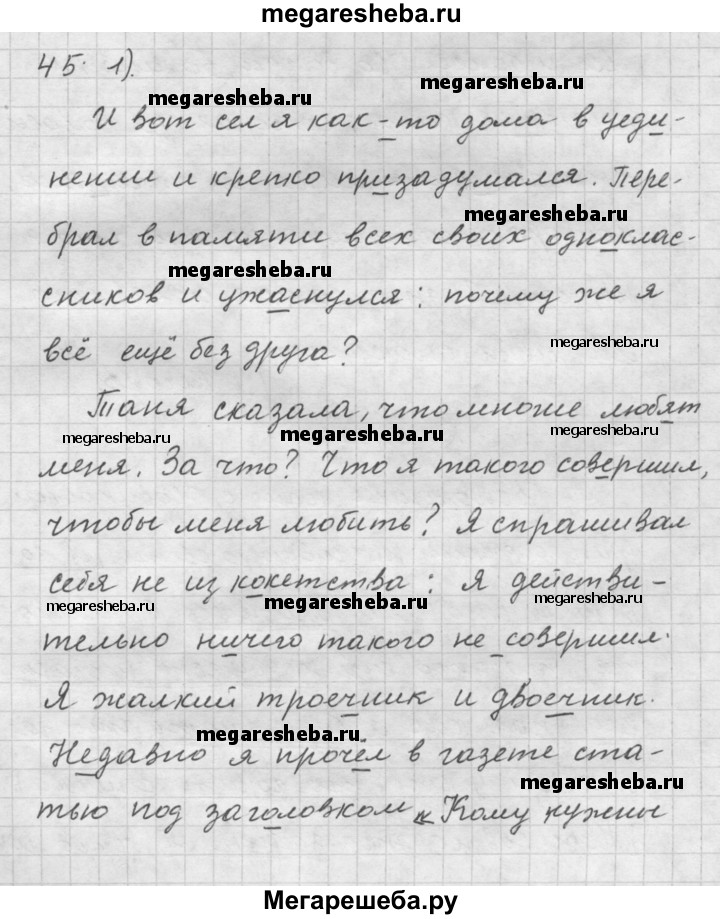 megaresheba.ru
45. 1).
megaresheba.ru
megaresheba.ru
И вот сел я как-то дома в уеди-
нении и крепко призадумался. Пере-
megaresheba.ru
брал в памяти всех своих однoклас-
megaresheba.ru
сников и ужаснулся: почему же я
megaresheba.ru
всё ещё без друга?
Таня сказала, что многие любят
megaresheba.ru
megaresheba.ru
megaresheba.ru
меня. За что? Что я такого совершил,
чтобы меня любить? Я спрашивал
себя не из кокетства: я действи-
megaresheba.ru
megaresheba.ru
megaresheba.ru
тельно ничего такого не совершил.
Я жалкий троечник и двоечник.
megaresheba.ru
Недавно я прочёл в газете ста-
megaresheba.ru
тью под заголовком «Кому нужны
Мегарешеба.ру